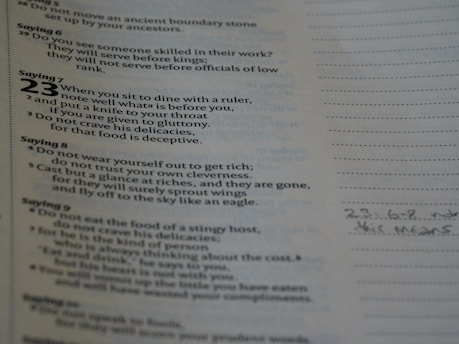 Saying 5
28 Do not move an ancient boundary stone
set up by your ancestors.
Saying 6
29 Do you see someone skilled in their work?
They will serve before kings;
they will not serve before officials of low
rank.
Saying 7
23 When you sit to dine with a ruler,
note well what a is before you,
2 and put a knife to your throat
if you are given to gluttony.
3 Do not crave his delicacies,
for that food is deceptive.
Saying 8
4 Do not wear yourself out to get rich;
do not trust your own cleverness.
5 Cast but a glance at riches, and they are gone,
for they will surely sprout wings
and fly off to the sky like an eagle.
Saying 9
6 Do not eat the food of a stingy host,
do not crave his delicacies;
7 for he is the kind of person
who is always thinking about the cost. b
"Eat and drink," he says to you,
but his heart is not with you.
8 You will vomit up the little you have eaten
and will have wasted your compliments.
Saying 10
9 Do not speak to fools,
for they will scorn your prudent words.
23:6-8
this means